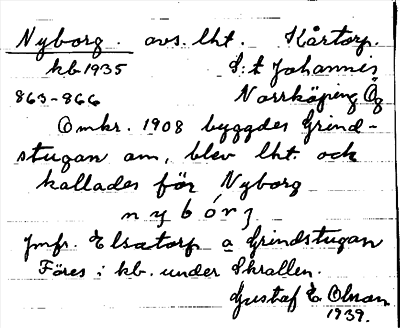 Nyborg. avs. lht. Kårtorp.
kb. 1935 S:t Johannis
863-866 Norrköping Ög
Omkr. 1908 byggdes Grind-
stugan om, blev lht. och
kallades för Nyborg
nybórj
Jmfr. Elsatorp a Grindstugan
Föres i kb. under Skrallen.
Gustaf E Olsson
1939.